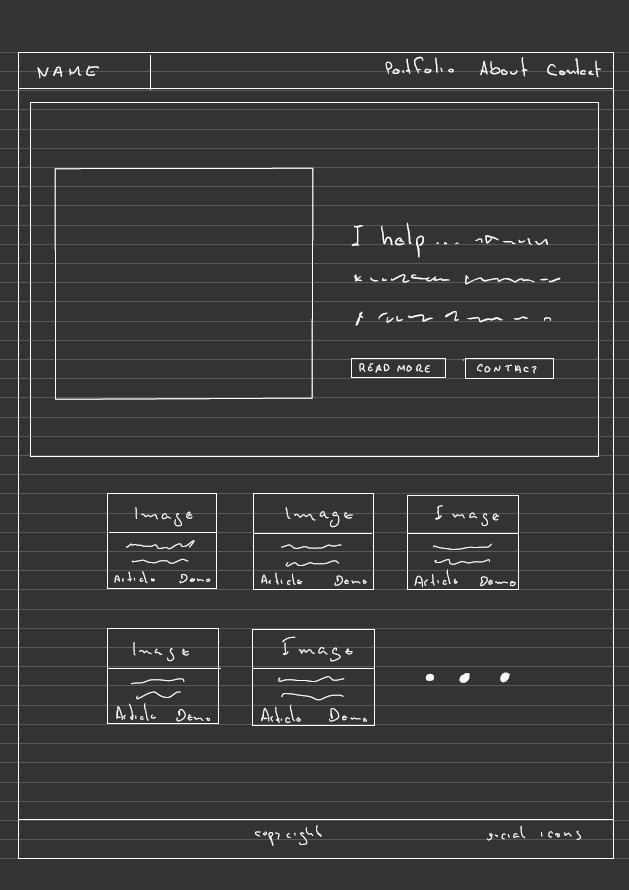 NAME Portfolio About Contact
I help...
READ MORE CONTACT
Image Image Image
Article Demo Article Demo Article Demo
Image Image
Article Demo Article Demo
copyright social icons